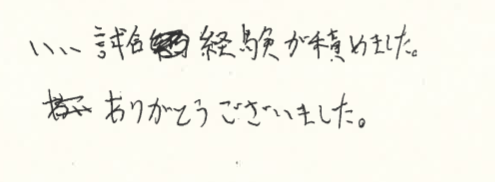 いい試合経験が積めました。
ありがとうございました。